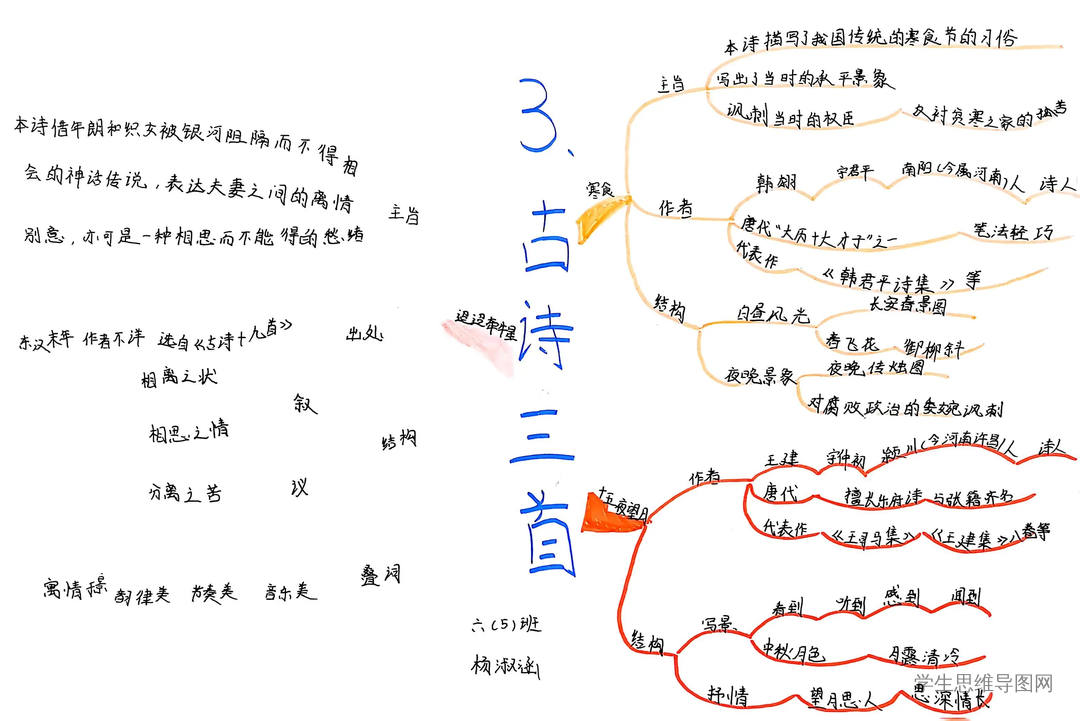 3、古诗三首
寒食
主旨
本诗描写了我国传统的寒食节的习俗
写出了当时的承平景象
讽刺当时的权臣
反衬贫寒之家的孤苦
作者
韩翃
字君平
南阳(今属河南)人
诗人
唐代"大历十大才子"之一
笔法轻巧
代表作
《韩君平诗集》等
结构
白昼风光
长安春景图
春飞花
御柳斜
夜晚景象
夜晚传烛图
对腐败政治的委婉讽刺
十五夜望月
作者
王建
字仲初
颍川(今河南许昌)人
诗人
唐代
擅长乐府诗
与张籍齐名
代表作
《王司马集》
《王建集》八卷等
结构
写景
看到
听到
感到
闻到
中秋月色
月露清冷
抒情
望月思人
思深情长
迢迢牵牛星
主旨
本诗借牛郎和织女被银河阻隔而不得相
会的神话传说，表达夫妻之间的离情
别意，亦可是一种相思而不能得的愁绪
出处
东汉末年
作者不详
选自《古诗十九首》
结构
叙
相离之状
相思之情
议
分离之苦
叠词
音乐美
节奏美
韵律美
寓情于景
六(5)班
杨淑涵
学生思维导图网